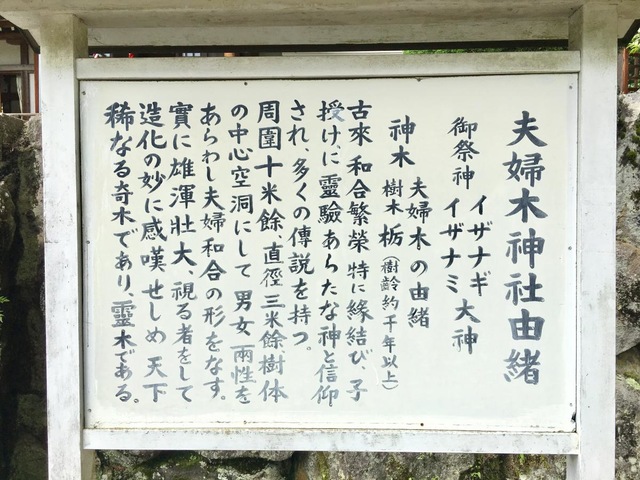 夫婦木神社由緒
御祭神 イザナギ
イザナミ 大神
夫婦木の由緒
神木 樹木 栃(樹齢約千年以上)
古來 和合繁榮 特に縁結び、子
授けに 靈驗あらたな神と信仰
され、多くの傳説を持つ。
周圍 十米餘 直徑 三米餘 樹体
の中心空洞にして 男女 兩性を
あらわし夫婦和合の形をなす。
實に雄渾壯大、視る者をして
造化の妙に感嘆せしめ 天下
稀なる奇木であり、靈木である。